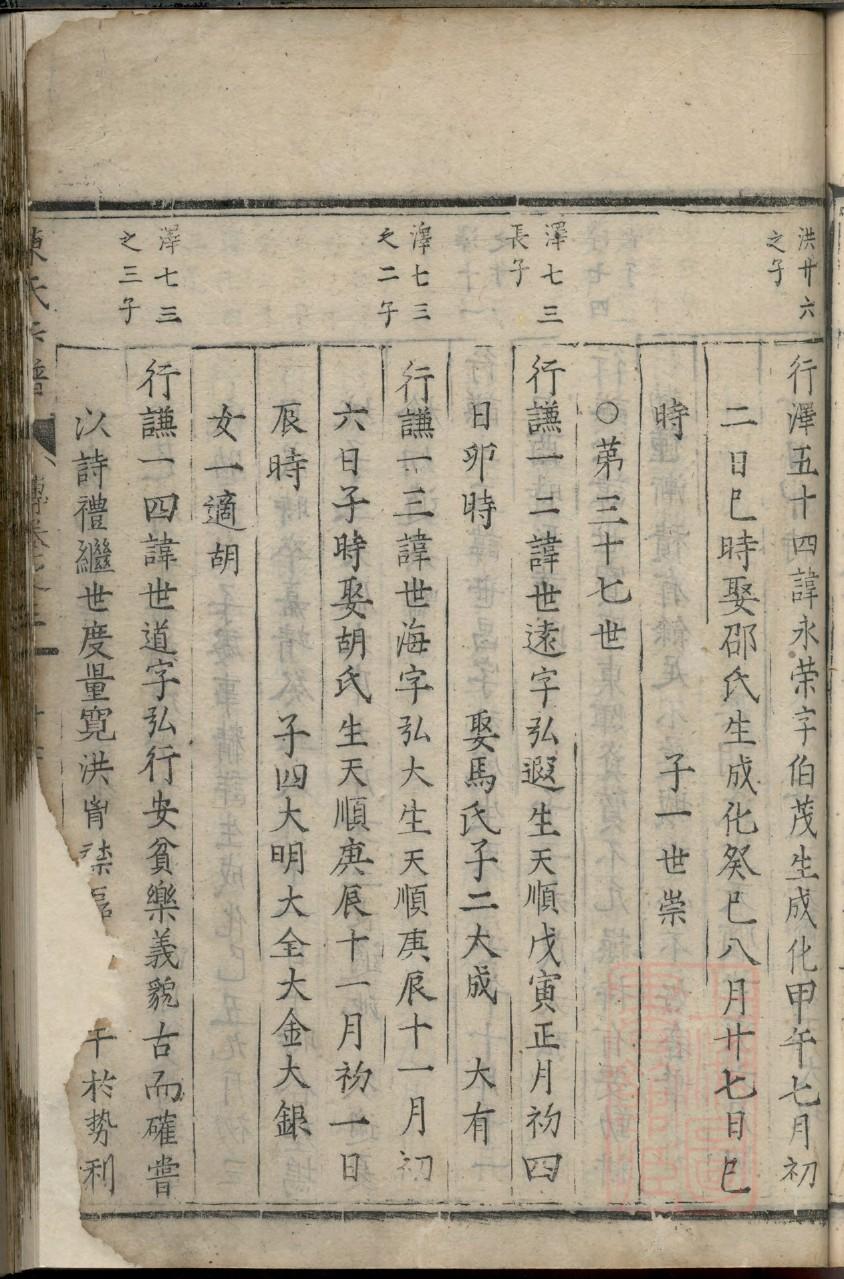 洪廿六
之子
行澤五十四諱永荣字伯茂生成化甲午七月初
二日巳時娶邵氏生成化癸巳八月廿七日巳
時　子一世崇
○第三十七世
澤七三
長子
行謙一二諱世遠字弘遐生天順戊寅正月初四
日卯時　娶馬氏子二大成　大有
澤七三
之二子
行謙一三諱世海字弘大生天順庚辰十一月初
六日子時娶胡氏生天順庚辰十一月初一日
辰時　子四大明大全大金大銀
女一適胡
澤七三
之三子
行謙一四諱世道字弘行安貧樂義貌古而確嘗
以詩禮繼世度量寬洪胷襟　干於勢利
氏　譜